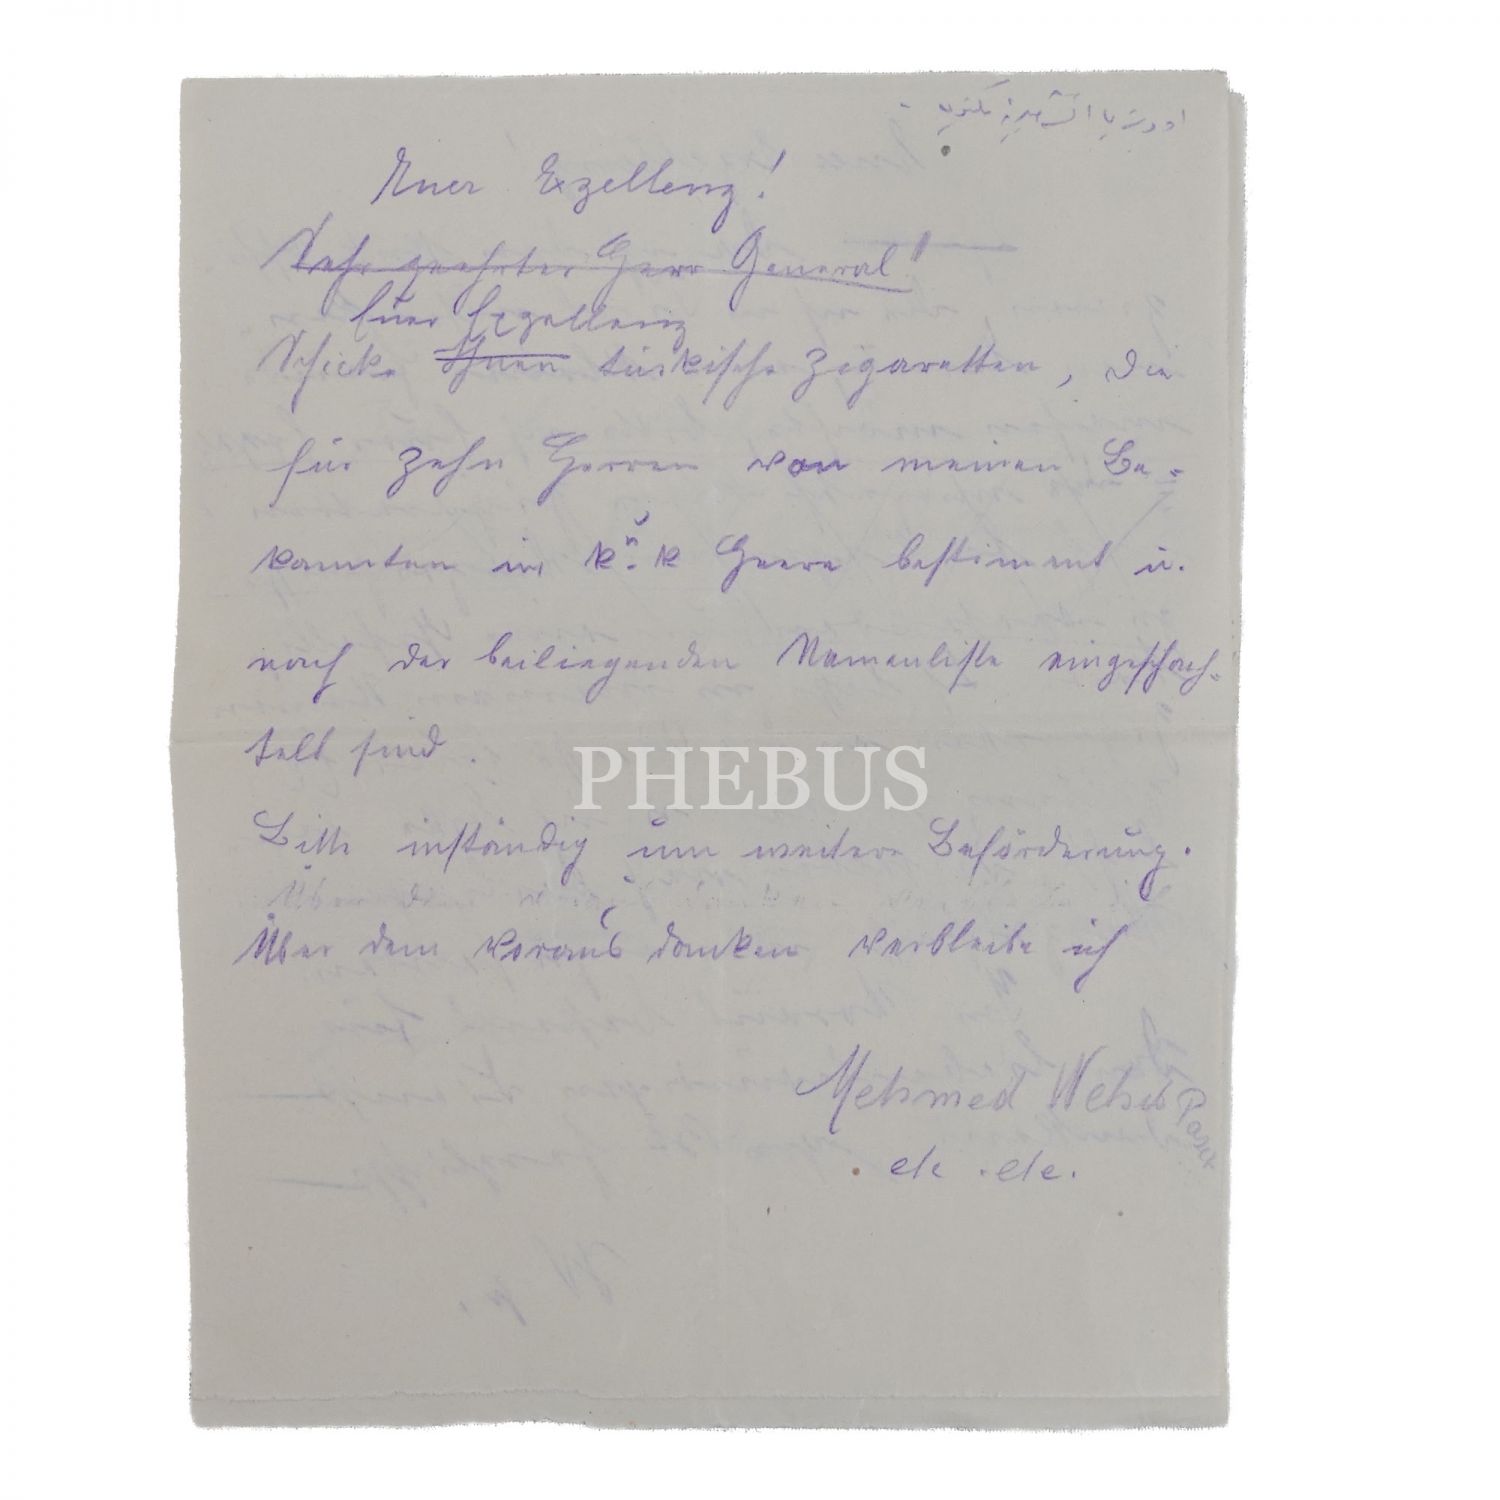 Euer Exzellenz!
Sehr geehrter Herr General!
Euer Exzellenz
Schicke Ihnen türkische Zigaretten, die
für zehn Herren von meinen Be-
kannten in k. u. k Heere bestimmt u.
nach der beiliegenden Namenliste eingeschach-
telt sind.
Bitte inständig um weitere Beförderung.
Über dem voraus danken verbleibe ich
Mehmed Wehib Pascha
etc. etc.
PHEBUS